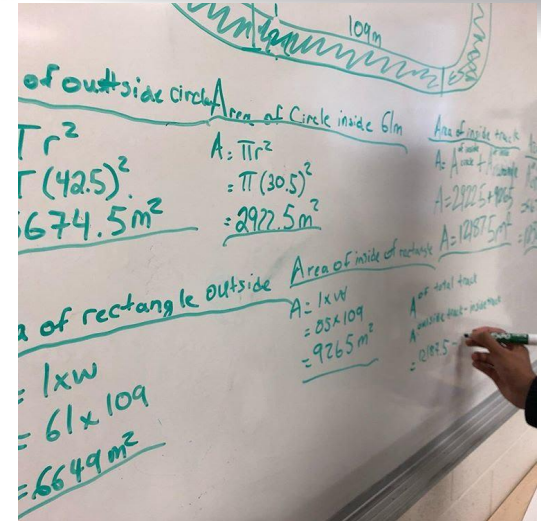 109m
of outtside circle
πr²
π(42.5)²
5674.5m²
Area of Circle inside 61m
A= πr²
= π(30.5)²
= 2922.5m²
Area of inside track
A=
A=2922.5+9265
A=12187.5m²
of rectangle outside
= lxw
= 61x109
= 6649m²
Area of inside of rectangle
A= lxw
= 85x109
= 9265m²
A of total track
A outside track - inside track
= 12187.5 -